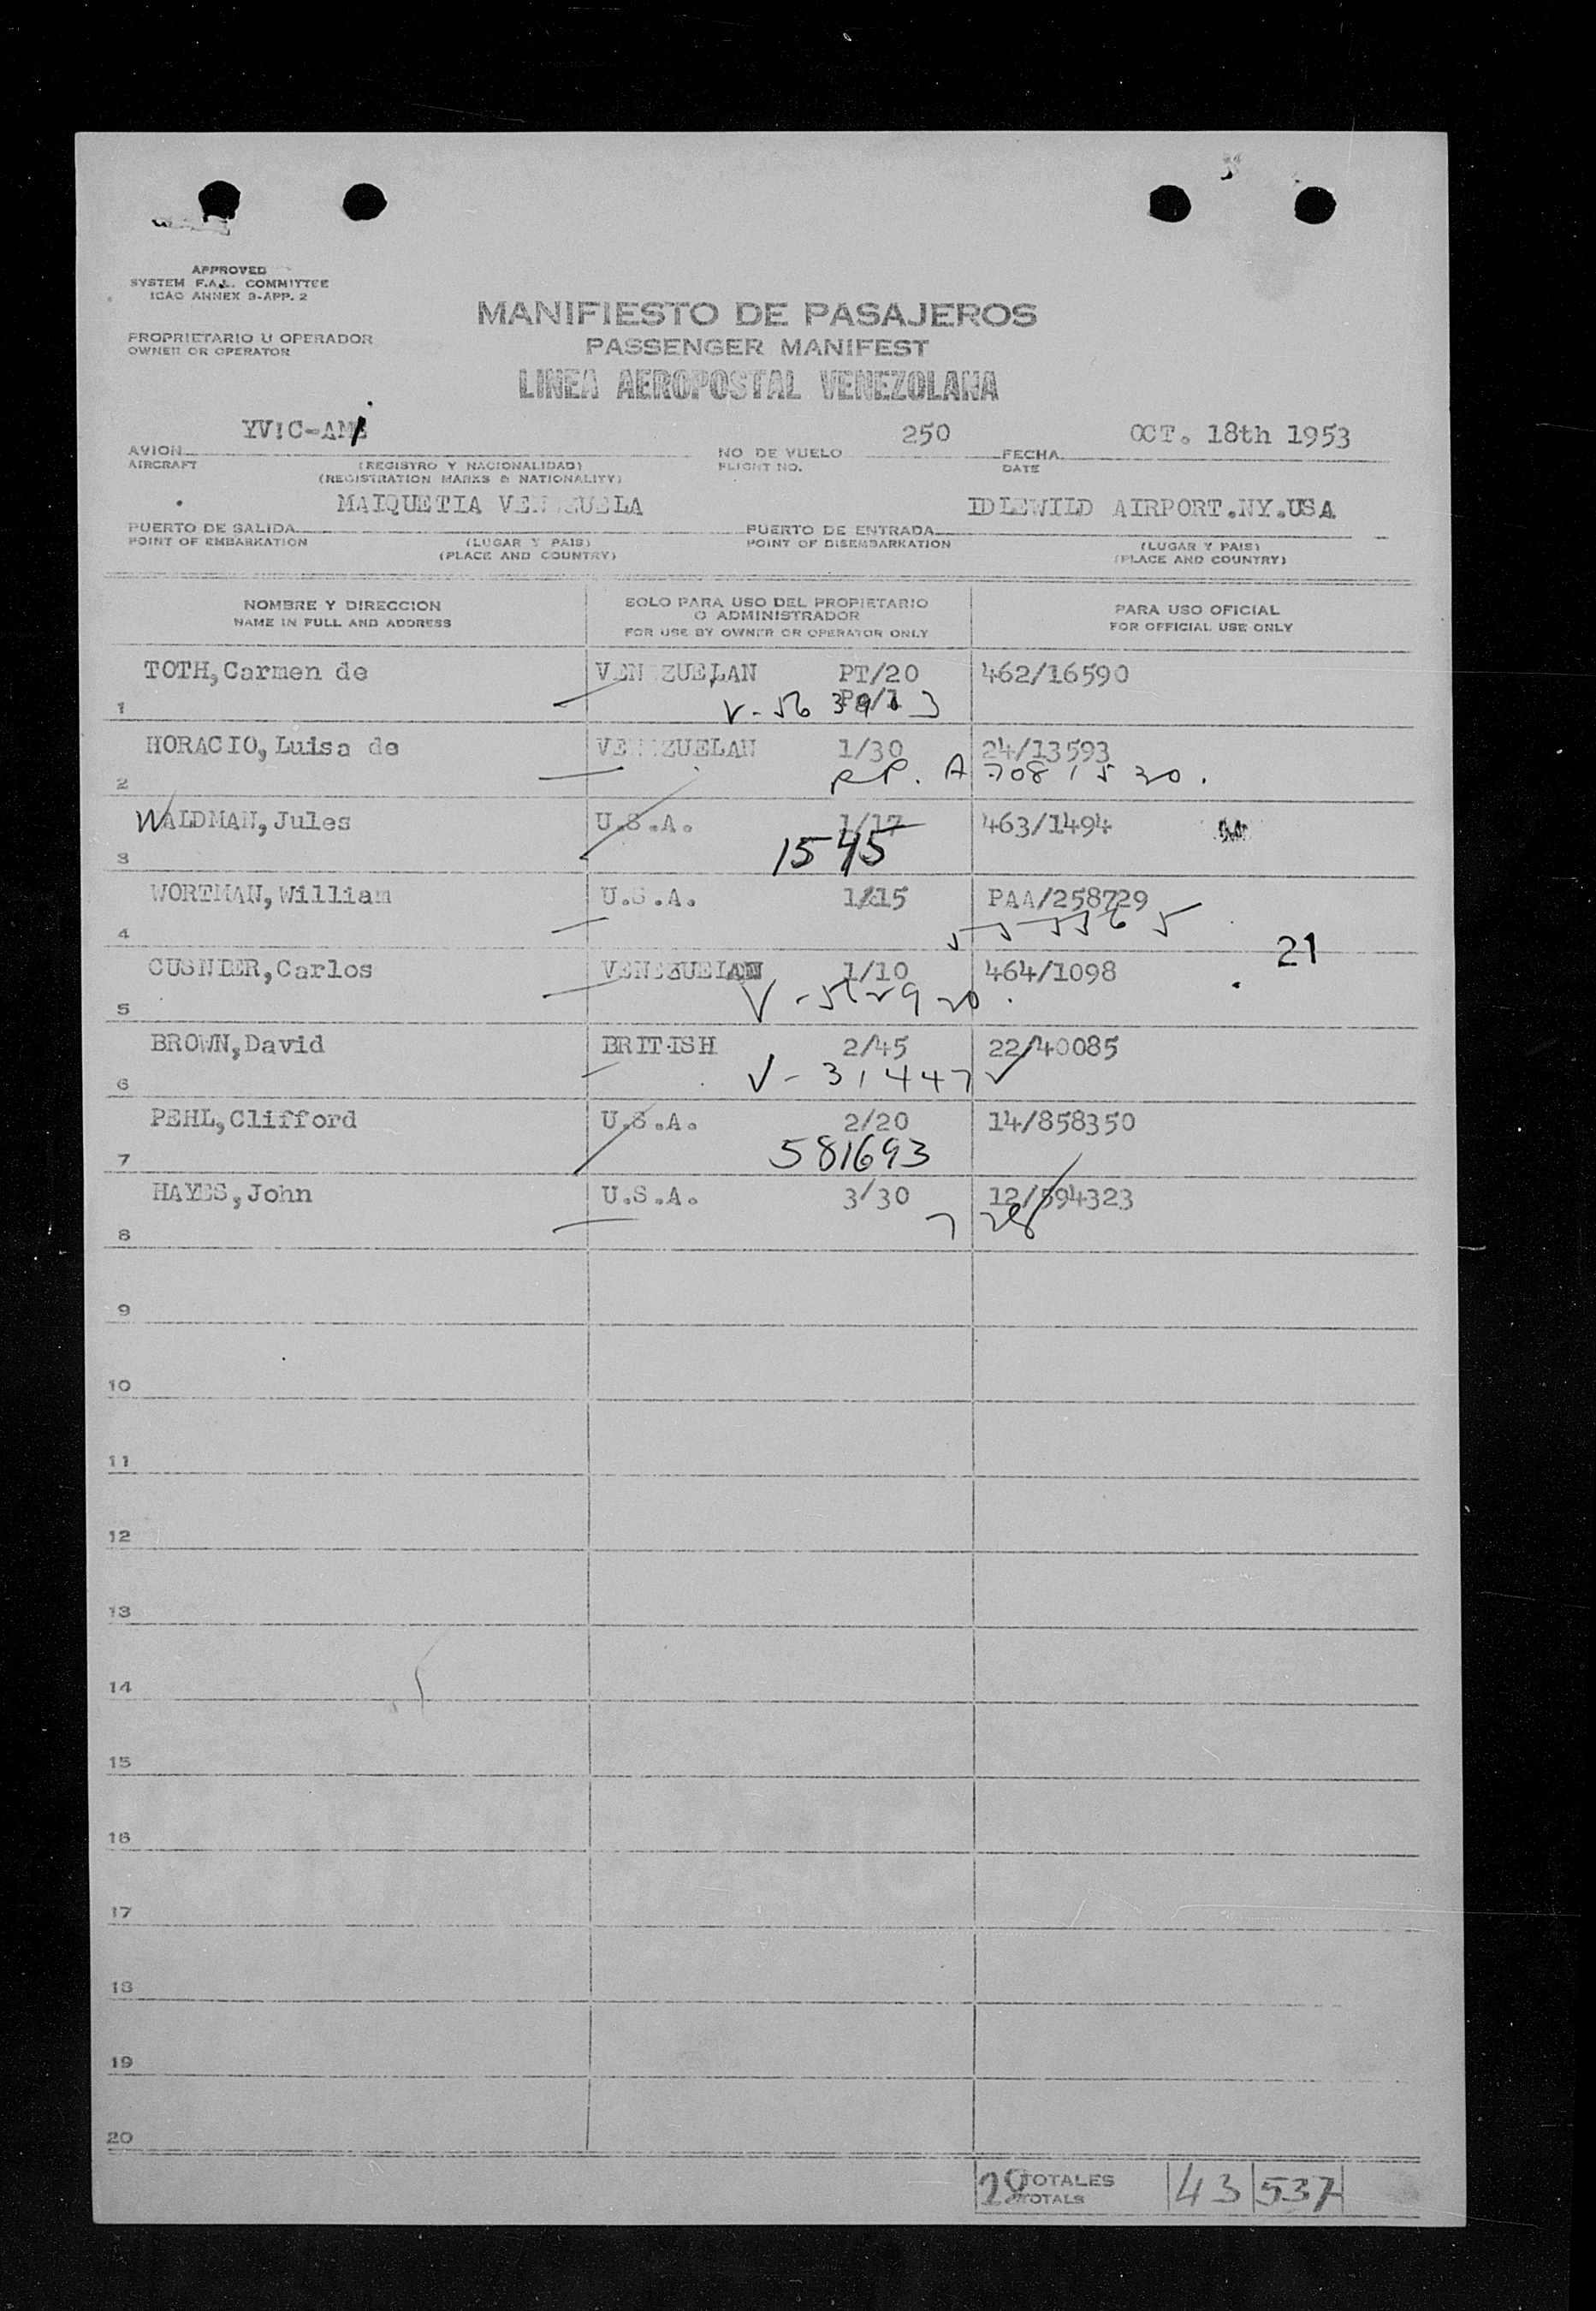 APPROVED
SYSTEM F.A.L. COMMITTEE
ICAO ANNEX 9-APP. 2
MANIFIESTO DE PASAJEROS
PROPRIETARIO U OPERADOR
OWNER OR OPERATOR
PASSENGER MANIFEST
LINEA AEROPOSTAL VENEZOLANA
250 OCT. 18th 1953
AVION NO DE VUELO FECHA
AIRCRAFT (REGISTRO Y NACIONALIDAD) FLIGHT NO. DATE
(REGISTRATION MARKS & NATIONALITY)
MAIQUETIA VENEZUELA IDLEWILD AIRPORT.NY.USA
PUERTO DE SALIDA PUERTO DE ENTRADA
POINT OF EMBARKATION (LUGAR Y PAIS) POINT OF DISEMBARKATION (LUGAR Y PAIS)
(PLACE AND COUNTRY) (PLACE AND COUNTRY)
NOMBRE Y DIRECCION SOLO PARA USO DEL PROPIETARIO PARA USO OFICIAL
O ADMINISTRADOR
NAME IN FULL AND ADDRESS FOR USE BY OWNER OR OPERATOR ONLY FOR OFFICIAL USE ONLY
TOTH, Carmen de VENEZUELAN PT/20 462/16590
1
HORACIO, Luisa de VENEZUELAN 1/30 24/13593
2 PP. A 7081520.
WALDMAN, Jules U.S.A. 1/17 463/1494
3 1545
WORTMAN, William U.S.A. 1/15 PAA/258729
4
21
CUSNIER, Carlos VENEZUELAN 1/10 464/1098
5
BROWN, David BRITISH 2/45 22/40085
6 V-31447
PEHL, Clifford U.S.A. 2/20 14/858350
7 581693
HAYES, John U.S.A. 3/30 12/594323
8 728
9
10
11
12
13
14
15
16
17
18
19
20
TOTALES 43 537
TOTALS